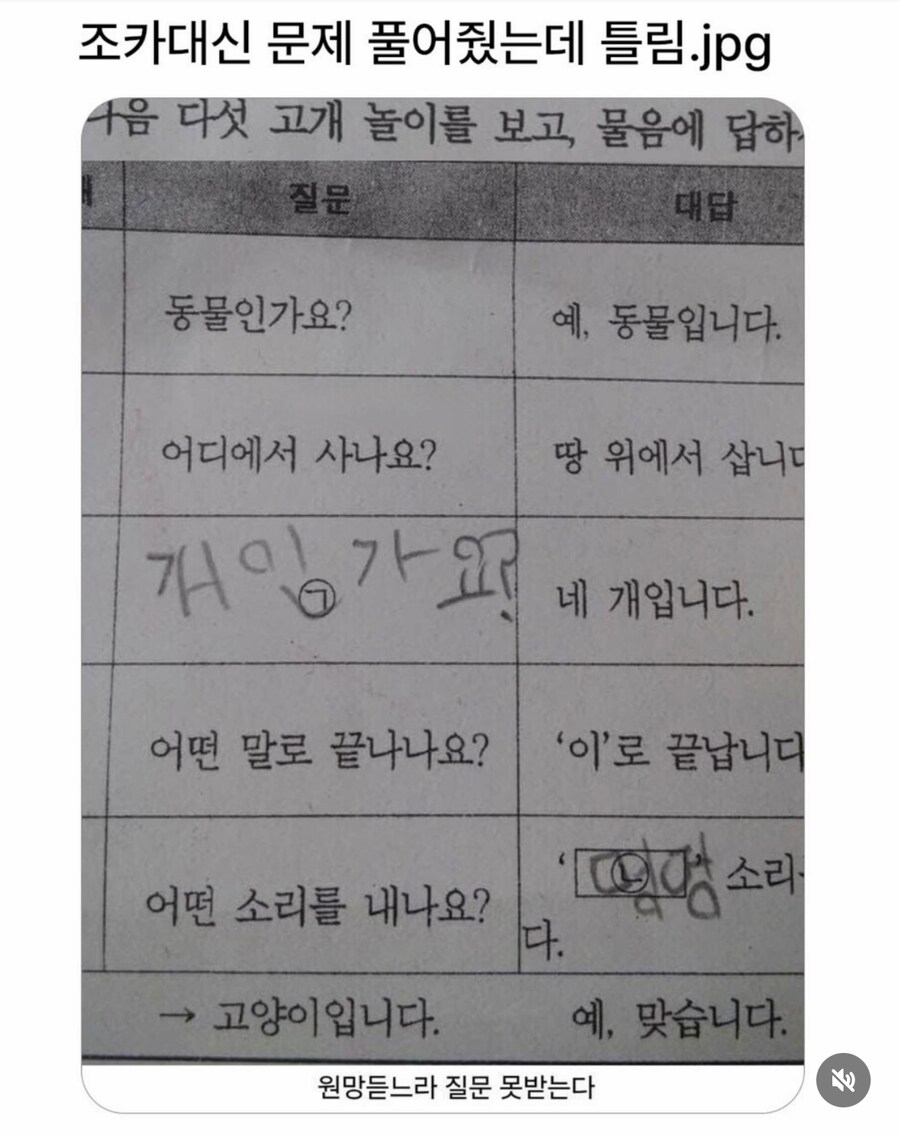 조카대신 문제 풀어줬는데 틀림.jpg
다음 다섯 고개 놀이를 보고, 물음에 답하
질문 대답
동물인가요? 예, 동물입니다.
어디에서 사나요? 땅 위에서 삽니다
개인가요? ㉠ 네 개입니다.
어떤 말로 끝나나요? ‘이’로 끝납니다
어떤 소리를 내나요? ‘멍멍 ㉡’ 소리
다.
→ 고양이입니다. 예, 맞습니다.
원망듣느라 질문 못받는다